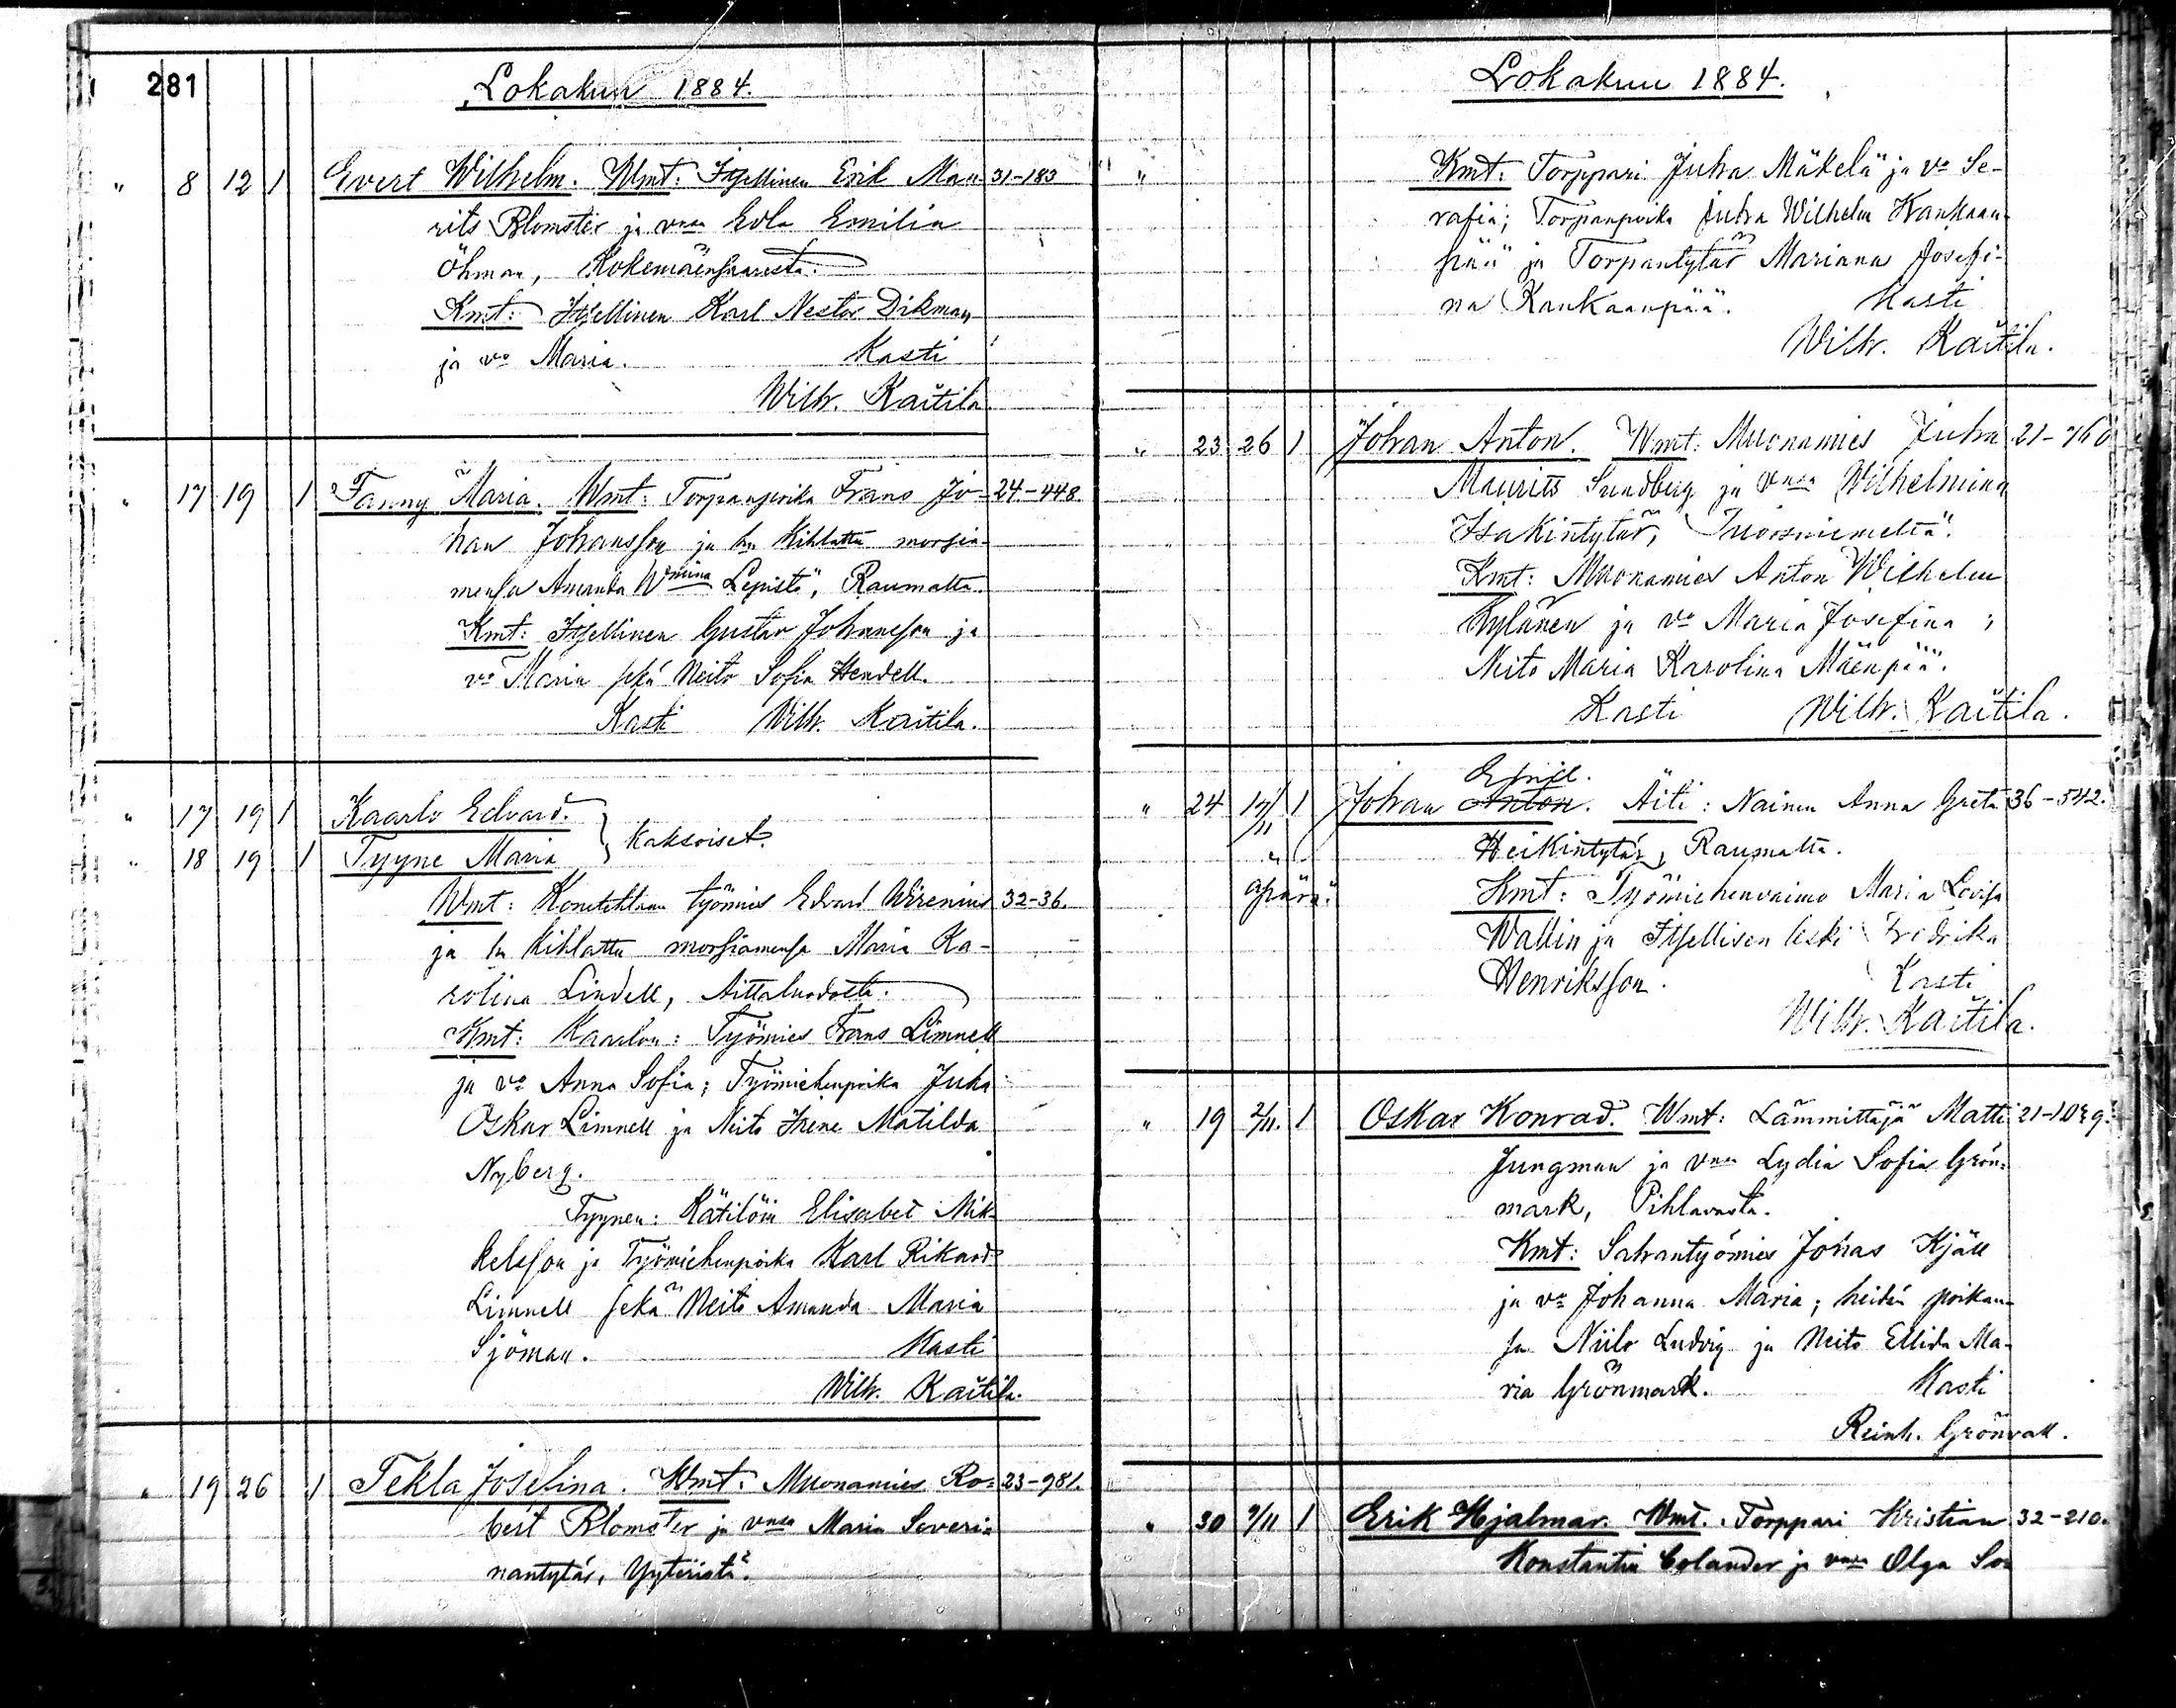 281
Lokakuu 1884.
" 8 12 1 Evert Wilhelm. Wmt: Itsellinen Erik Mau- 31-183
rits Blomster ja vmsa Edla Emilia
Öhman, Kokemäensaaresta.
Kmt: Itsellinen Karl Nestor Dikman
ja vo Maria. Kasti
Wilh. Kaitila.
" 17 19 1 Fanny Maria. Wmt: Torpanpoika Frans Jo- 24-448.
han Johansson ja hn kihlattu morsia-
mensa Amanda Wmina Lepistö, Raumalta.
Kmt: Itsellinen Gustav Johansson ja
vo Maria sekä Neito Sofia Hendell.
Kasti Wilh. Kaitila.
" 17 19 1 Kaarlo Edvard.
" 18 19 1 Tyyne Maria } kaksoiset.
Wmt: työmies Edvard Wirenius 32-36.
ja hn kihlattu morsiamensa Maria Ka-
rolina Lindell, Aittaluodosta.
Kmt: Kaarlon: Työmies Frans Limnell
ja vo Anna Sofia; Työmiehenpoika Juha
Oskar Limnell ja Neito Irene Matilda
Nyberg.
Tyynen: Kätilöin Elisabet Mik-
kelsson ja Työmiehenpoika Karl Rikard
Limnell sekä Neito Amanda Maria
Sjöman. Kasti
Wilh. Kaitila.
" 19 26 1 Tekla Josefina. Wmt: Muonamies Ro- 23-981.
bert Blomster ja vmsa Maria Severi-
nantytär, Yyteristä.
Lokakuu 1884.
" Kmt: Torppari Juha Mäkelä ja vo Se-
rafia; Torpanpoika Juha Wilhelm Kankaan-
pää ja Torpantytär Mariana Josefi-
na Kankaanpää. Kasti
Wilh. Kaitila.
" 23 26 1 Johan Anton. Wmt: Muonamies Juha 21-760
Maurits Sundberg ja vmsa Wilhelmina
Isakintytär, Tuorsniemeltä.
Kmt: Muonamies Anton Wilhelm
Kylänen ja vo Maria Josefina;
Neito Maria Karolina Mäenpää.
Kasti Wilh. Kaitila.
Emil.
" 24 17/11 1 Johan Anton. Äiti: Nainen Anna Greta 36-542.
" Heikintytär, Raumalta.
äpärä. Kmt: Työmiehenvaimo Maria Lovisa
Wallin ja Itsellisen leski Fredrika
Henriksson. Kasti
Wilh. Kaitila.
" 19 2/11. 1 Oskar Konrad. Wmt: Lämmittäjä Matti 21-1029.
Jungman ja vmsa Lydia Sofia Grön-
mark, Pihlavasta.
Kmt: Sahantyömies Johas Kjäll
ja vo Johanna Maria; heidän poikan-
sa Niilo Ludvig ja Neito Ellida Ma-
ria Grönmark. Kasti
Reinh. Grönvall.
" 30 9/11 1 Erik Hjalmar. Wmt. Torppari Kristian 32-210.
Konstantin Colander ja vmsa Olga So-